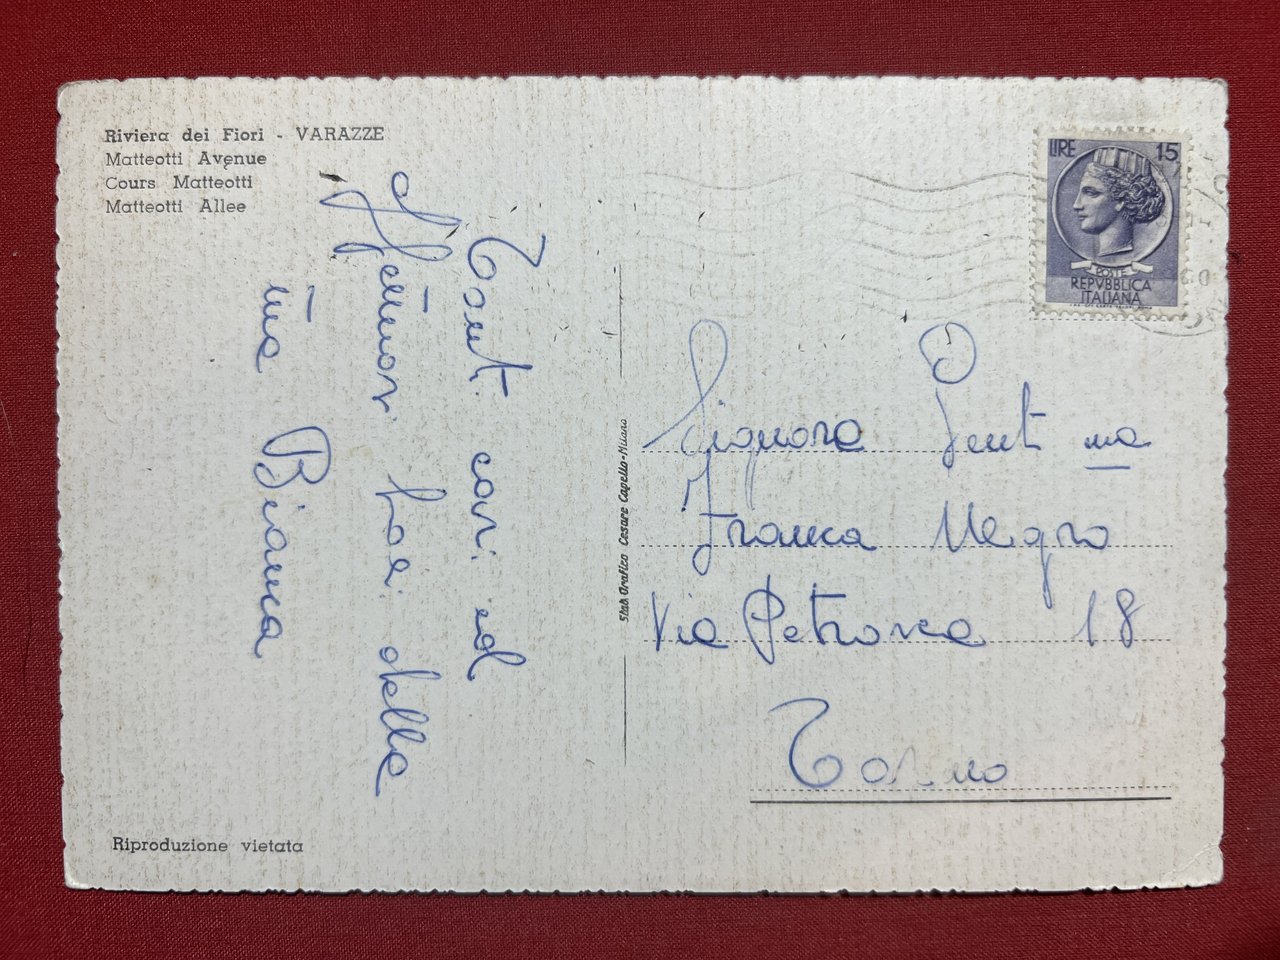 Riviera dei Fiori - VARAZZE
Matteotti Avenue
Cours Matteotti
Matteotti Allee
Tanti cari ed
affettuosi baci dalla
tua Bianca
Riproduzione vietata
Stab. Grafico Cesare Capello - Milano
LIRE 15
POSTE
REPVBBLICA
ITALIANA
Signora Gent ma
Franca Negro
Via Petrarca 18
Torino